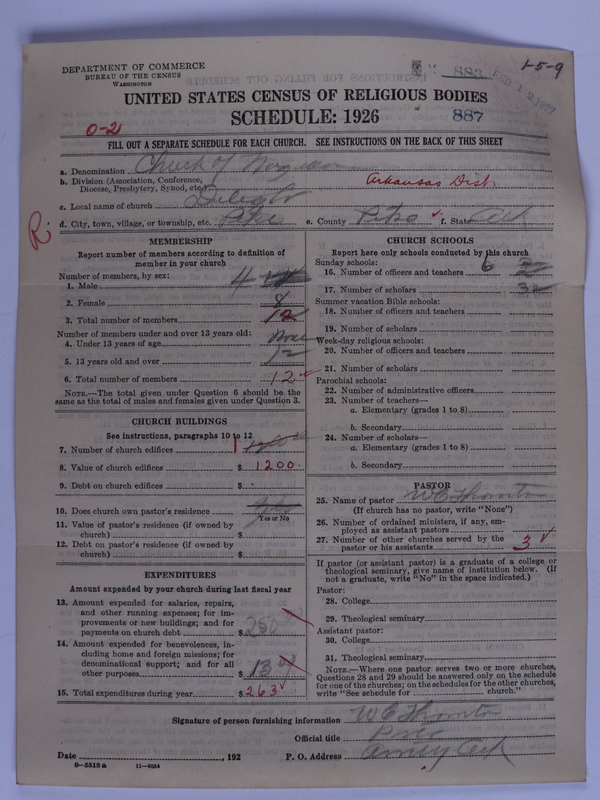 DEPARTMENT OF COMMERCE
BUREAU OF THE CENSUS
WASHINGTON
883
1-5-9
UNITED STATES CENSUS OF RELIGIOUS BODIES
SCHEDULE: 1926
887
0-2
FILL OUT A SEPARATE SCHEDULE FOR EACH CHURCH. SEE INSTRUCTIONS ON THE BACK OF THIS SHEET
a. Denomination Church of
b. Division (Association, Conference, Diocese, Presbytery, Synod, etc.) Arkansas Dist.
c. Local name of church Delight
d. City, town, village, or township, etc. Pike e. County Pike f. State Ark
R.
MEMBERSHIP
Report number of members according to definition of
member in your church
Number of members, by sex:
1. Male 4
2. Female 8
3. Total number of members 12
Number of members under and over 13 years old:
4. Under 13 years of age None
5. 13 years old and over 12
6. Total number of members 12
NOTE.—The total given under Question 6 should be
same as the total of males and females given under Question 3.
CHURCH BUILDINGS
See instructions, paragraphs 10 to 12
7. Number of church edifices 1
8. Value of church edifices $ 1200.
9. Debt on church edifices $
10. Does church own pastor's residence
Yes or No
11. Value of pastor's residence (if owned by
church) $
12. Debt on pastor's residence (if owned by
church) $
EXPENDITURES
Amount expended by your church during last fiscal year
13. Amount expended for salaries, repairs,
and other running expenses; for im-
provements or new buildings; and for
payments on church debt $ 250
14. Amount expended for benevolences, in-
cluding home and foreign missions; for
denominational support; and for all
other purposes $ 13
15. Total expenditures during year $ 263
CHURCH SCHOOLS
Report here only schools conducted by this church
Sunday schools:
16. Number of officers and teachers 6
17. Number of scholars 32
Summer vacation Bible schools:
18. Number of officers and teachers
19. Number of scholars
Week-day religious schools:
20. Number of officers and teachers
21. Number of scholars
Parochial schools:
22. Number of administrative officers
23. Number of teachers—
a. Elementary (grades 1 to 8)
b. Secondary
24. Number of scholars—
a. Elementary (grades 1 to 8)
b. Secondary
PASTOR
25. Name of pastor W C Thornton
(If church has no pastor, write "None")
26. Number of ordained ministers, if any, em-
ployed as assistant pastors
27. Number of other churches served by the
pastor or his assistants 3
If pastor (or assistant pastor) is a graduate of a college or
theological seminary, give name of institution below. (If
not a graduate, write "No" in the space indicated.)
Pastor:
28. College
29. Theological seminary
Assistant pastor:
30. College
31. Theological seminary
NOTE.—Where one pastor serves two or more churches,
Questions 28 and 29 should be answered only on the schedule
for one of the churches; on the schedules for the other churches,
write "See schedule for ________ church."
Signature of person furnishing information W C Thornton
Official title
Date ________, 192 P. O. Address Ark
8—5519 a 11—9564